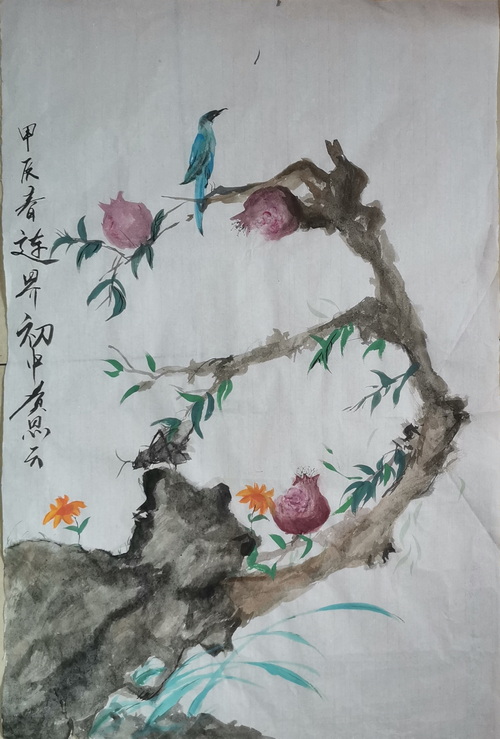 甲辰春连界初中黄思云